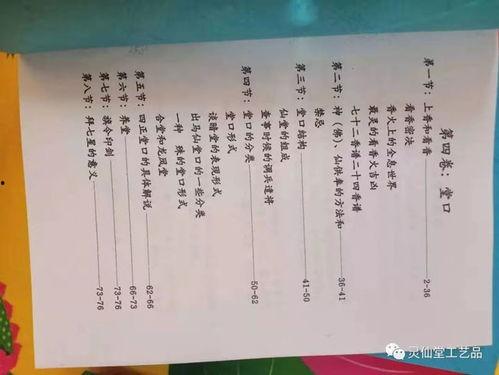 第四卷：堂口
第一节：上香和看香 2-36
看香密决
香火上的全息世界
最灵的看香火吉凶
七十二香谱二十四香谱
第二节：神（佛）、仙供奉的方法和 36-41
禁忌
第三节：堂口结构 41-50
仙堂的组成
查事时候的调兵遣将
第四节：堂口的分类 50-62
堂口形式
暗堂的表现形式
出马仙堂口的一些分类
一种 殊的堂口形式
合堂和龙凤堂
第五节：四正堂口的具体解说 62-66
第六节：养堂 66-73
第七节：旗令印剑 73-76
第八节：拜七星的意义 73-76
灵仙堂工艺品